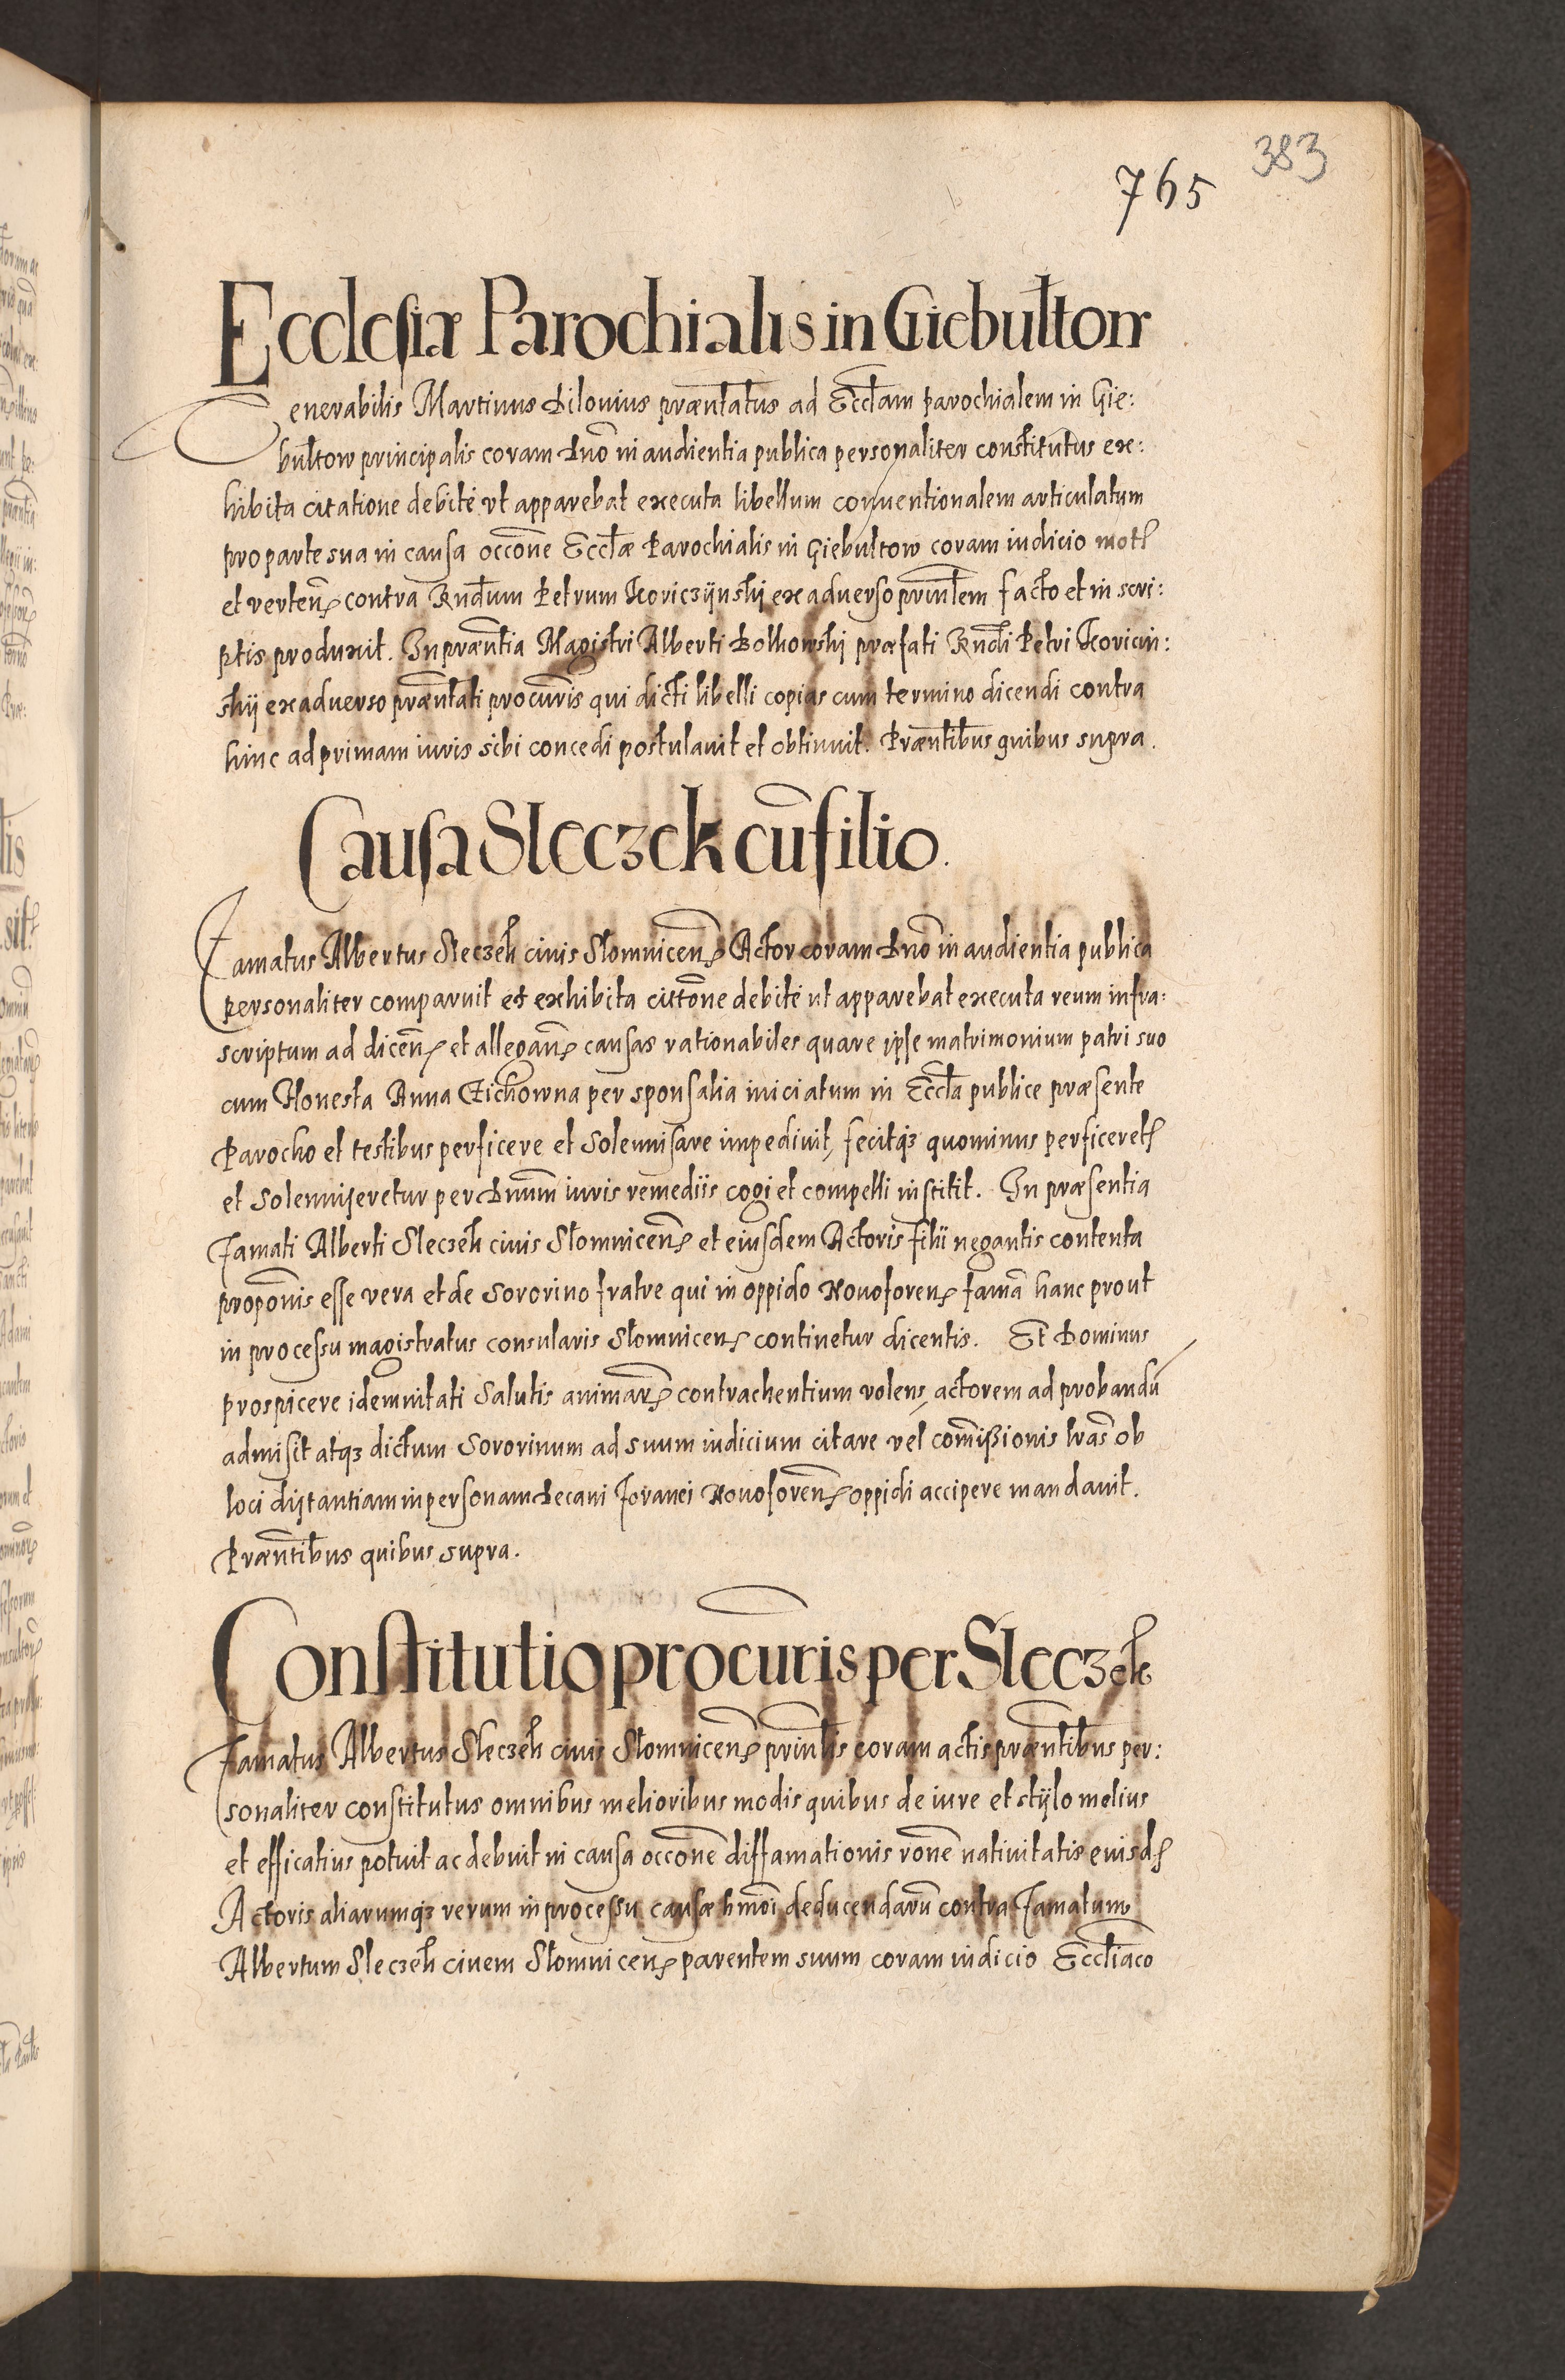 383
765
Ecclesiæ Parochialis in Giebułtow
Venerabilis Martinus Dilovius præntatus ad Eccłam parochialem in Gie:
bułtow principalis coram Dno in audientia publica personaliter constitutus ex:
hibita citatione debite ut apparebat executa libellum conventionalem articulatum
pro parte sua in causa occone Ecctæ Parochialis in Giebultow coram iudicio mot
et verten contra Rndum Petrum Koriczijnskij ex adverso printem facto et in scri:
ptis produxit. In præntia Magistri Alberti Bolkowskij præfati Rndi Petri Koricin:
skij ex adverso præntati procuris qui dicti libelli copias cum termino dicendi contra
hinc ad primam iuris sibi concedi postulavit et obtinuit. Præntibus quibus supra.
Causa Sleczek cū filio.
Famatus Albertus Sleczek civis Słomnicen Actor coram Dno in audientia publica
personaliter comparuit et exhibita cittone debite ut apparebat executa reum infra:
scriptum ad dicen et allegan causas rationabiles quare ipse matrimonium patri suo
cum Honesta Anna Cichowna per sponsalia iniciatum in Eccta publice præsente
Parocho et testibus perficere et solennisare impedivit, fecitq3 quominus perficeret
et solenniseretur per Dnum iuris remediis cogi et compelli institit. In præsentia
Famati Alberti Sleczek civis Słomnicen et eiusdem Actoris filii negantis contenta
proponis esse vera et de sororino fratre qui in oppido Novoforen famā hanc prout
in processu magistratus consularis Słomnicen continetur dicentis. Et Dominus
prospicere idemnitati salutis animar contrachentium volens, actorem ad probandū
admisit atq3 dictum sororinum ad suum iudicium citare vel comißionis lras ob
loci distantiam in personam Decani foranei Novoforen oppidi accipere mandavit.
Præntibus quibus supra.
Constitutio procuris per Sleczek
Famatus Albertus Sleczek civis Słomnicen printis coram actis præntibus per:
sonaliter constitutus omnibus melioribus modis quibus de iure et stijlo melius
et efficatius potuit ac debuit in causa occone diffamationis rone nativitatis eiusd
Actoris aliarumq3 rerum in processu causæ hmoi deducendarū contra Famatum
Albertum Sleczek civem Słomnicen parentem suum coram iudicio Ecctiaco